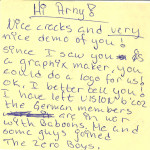 Hi Arny8
Nice cracks and very
nice demo of you!
Since I saw you
a graphix maker, you
could do a logo for us!
ok, I better tell you!
I have left VISION 6'02
the German members
are in war
with Baboons. Me and
some guys joined
The Zero Boys.